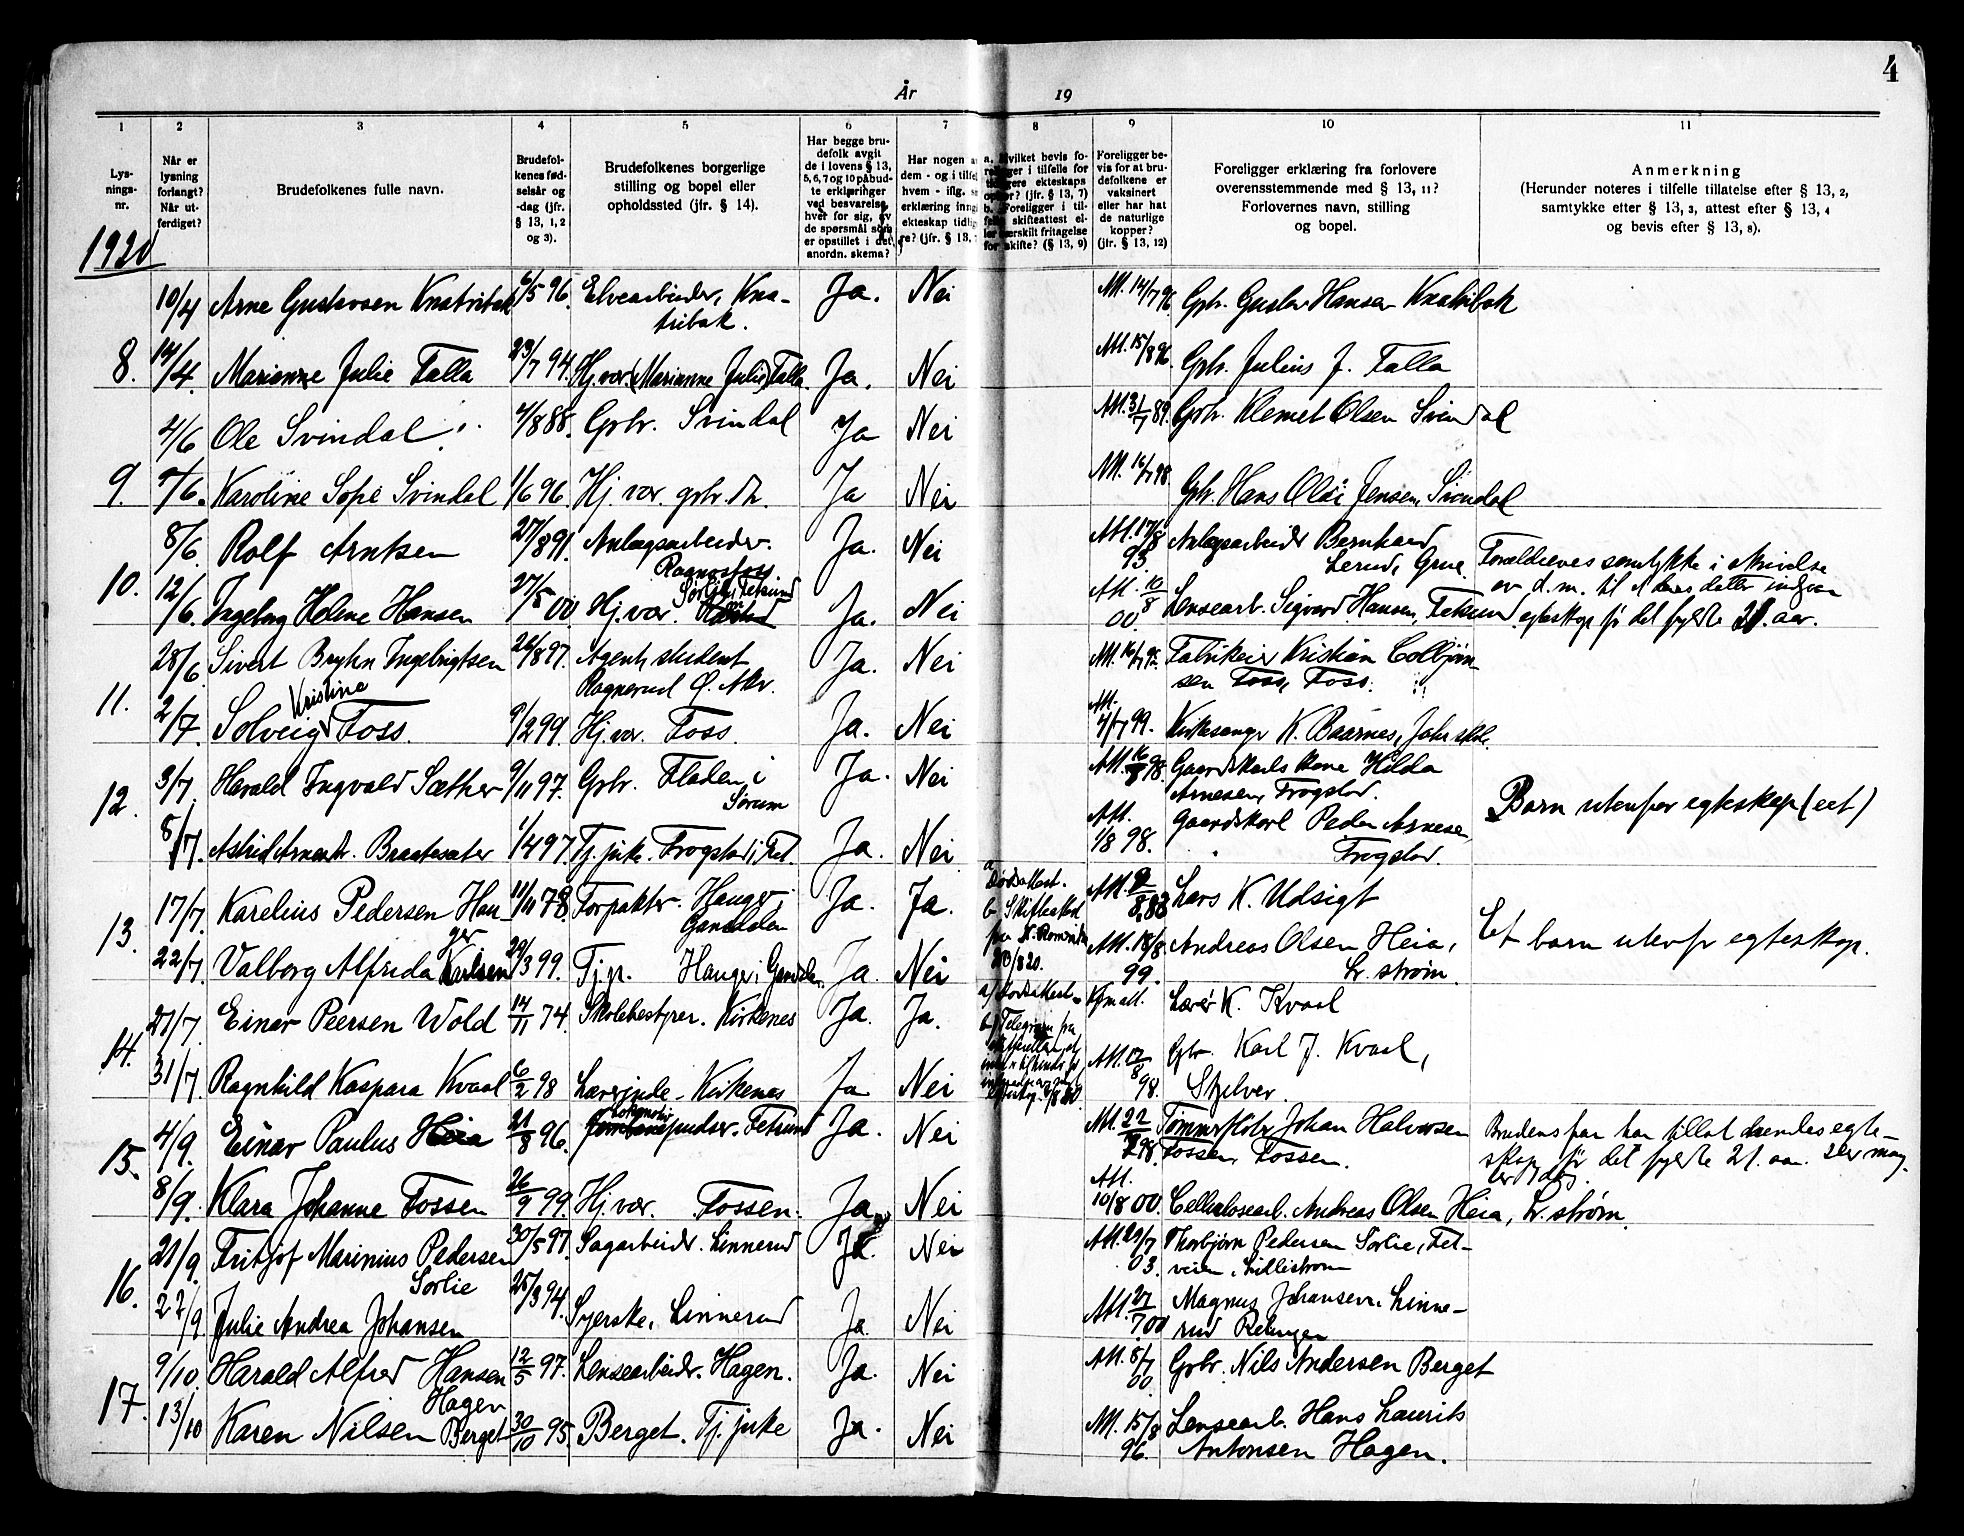 4
År 19
1 2 3 4 5 6 7 8 9 10 11
Lys-
nings-
nr.
Når er
lysning
forlangt?
Når ut-
ferdiget?
Brudefolkenes fulle navn.
Brudefol-
kenes fød-
selsår og
-dag (jfr.
§ 13, 1, 2
og 3).
Brudefolkenes borgerlige
stilling og bopel eller
opholdssted (jfr. § 14).
Har begge bru-
defolk avgit
de i lovens § 13,
5, 6, 7 og 10 påbud-
te erklæringer
ved besvarelse
hver for sig, av
de spørsmål som
er opstillet i det
anordn. skema?
Har nogen a
dem - og i tilfel
hvem - iflg. s
erklæring inng
ekteskap tidlig
re? (jfr. § 13,
a. Hvilket bevis fo-
religger i tilfelle for
tidligere ekteskaps
ophør? (jfr. § 13, 7)
b. Foreligger i til-
felle skifteattest el-
ler særskilt fritagelse
for skifte? (§ 13, 9)
Foreligger be-
vis for at bru-
defolkene er
vaksinert
eller har hat
de naturlige
kopper?
(jfr. § 13, 12)
Foreligger erklæring fra forlovere
overensstemmende med § 13, 11?
Forlovernes navn, stilling
og bopel.
Anmerkning
(Herunder noteres i tilfelle tillatelse efter § 13, 2,
samtykke efter § 13, 3, attest efter § 13, 4
og bevis efter § 13, 8).
1920
10/4 Arne Gustavsen Knatribak 6/5 96. Elvearbeider, Kna- Ja. Nei Att. 14/7 96 Gbr. Gustav Hansen Knatribak
tribak.
8. 14/4 Marianne Julie Falla 23/7 94. Hj. vær. (Marianne Julie) Falla Ja. Nei Att. 15/8 96. Gbr. Julius J. Falla
4/6 Ole Svindal 4/8 88. Gbr. Svindal Ja Nei Att. 31/7 89. Gbr. Klemet Olsen Svindal
9. 7/6. Karoline Sofie Svindal 1/6 96 Hj. vær. gbr. dt. Ja Nei Att. 16/7 98. Gbr. Hans Olai Jensen, Svindal
8/6 Rolf Arntsen 27/8 91. Anlægsarbeider. Ja. Nei Att. 17/8 Anlægsarbeider Bernhard
Ragnosfoss 93. Lerud, Grue. Forældrenes samtykke i skrivelse
10. 12/6. Ingeborg Helene Hansen 27/5 00 Hj. vær. Sørlie i Fetsund Ja. Nei Att. 10/8 00. Lensearb. Sigvard Hansen, Fetsund
av d. m. til deres datter indgaar
egteskap før det fyldte 21. aar.
28/6 Sivert Bryhn Ingebrigtsen 26/8 97. Agent, student Ja. Nei Att. 16/7 92. Fabrikeier Kristian Colbjørn-
Ragnerud Ø. Aker. sen Foss, Foss.
11. 2/7. Solveig Kristine Foss. 9/2 99. Hj. vær. Foss. Ja. Nei Att. 4/7 99. Kirkesanger K. Baarnes, Jahr skole.
3/7. Harald Ingvald Sæther 9/11 97. Gbr. Fladen i Ja. Nei Att. 16/8 98. Gaardskarls kone Hilda
Sørum Arnesen, Frogstad.
12. 8/7. Astrid Braatesæter 1/4 97. Tj. pike. Frogstad i Fet. Ja. Nei Att. 1/8 98. Gaardskarl Peder Arnesen
Frogstad.
Barn utenfor egteskap (eet)
17/7 Karelius Pedersen Hau- 11/11 78. Forpakter. Hauger Ja. Ja. a Dødsattest. Att. 9/8 88 Lars K. Udsigt
ger Gansdalen b. Skifteattest fra N. Romerike /8 20.
13. 22/7 Valborg Alfrida Karlsen 29/3 99. Tj. p. Hauger i Gansdalen. Ja. Nei Att. 18/8 99. Andreas Olsen Heia,
L. strøm.
Et barn utenfor egteskap.
27/7 Einar Peersen Wold 14/11 74. Skolebestyrer. Kirkenes Ja. Ja. a) Dødsattest. Kfm att. Lærer K. Kvaal
b) Telegram fra
14. 31/7 Ragnhild Kaspara Kvaal 6/2 98 Lærerinde - Kirkenes Ja Nei Att. 12/8 98. Gbr. Karl J. Kvaal,
Stjelver.
4/9. Einar Paulus Heia 21/8 96. Lokomotivpudser. Fetsund Ja. Nei Att. 22/7 98. Tømmerfløter Johan Halvorsen
Fossen, Fossen.
Brudens far har tillat dendes egte-
skap før det fyldte 21. aar.
15. 8/9. Klara Johanne Fossen 26/9 99. Hj. vær. Fossen. Ja Nei Att. 10/8 00. Cellulosearb. Andreas Olsen Heia, L. strøm.
21/9. Fritjof Marinius Pedersen 30/5 97. Sagarbeider. Linnerud Ja. Nei Att. 29/7 03. Thorbjørn Pedersen Sørlie, Fet-
Sørlie veien, Lillestrøm
16. 22/9 Julie Andrea Johansen 25/3 94. Syerske, Linnerud Ja. Nei Att. 27/7 00 Magnus Johansen, Linne-
rud Rælingen
9/10. Harald Alfred Hansen 12/5 97. Lensearbeider. Hagen. Ja. Nei Att. 8/7 00. Gbr. Nils Andersen Berget
Hagen
17. 13/10 Karen Nilsen Berget 30/10 95. Berget. Tj. pike Ja. Nei Att. 15/8 96. Lensearb. Hans Laurits
Antonsen Hagen.